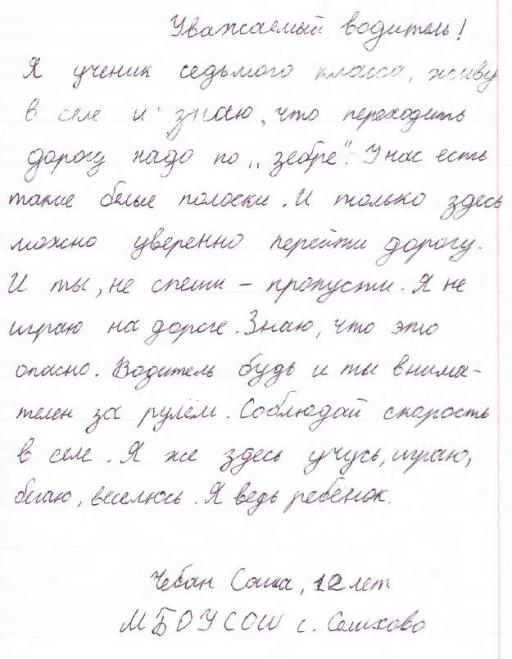 Уважаемый водитель!
Я ученик седьмого класса, живу
в селе и знаю, что переходить
дорогу надо по „зебре". У нас есть
такие белые полоски. И только здесь
можно уверенно перейти дорогу.
И ты, не спеши – пропусти. Я не
играю на дороге. Знаю, что это
опасно. Водитель будь и ты внима-
телен за рулём. Соблюдай скорость
в селе. Я же здесь учусь, играю,
бегаю, веселюсь. Я ведь ребёнок.
Чебан Саша, 12 лет
МБОУСОШ с.